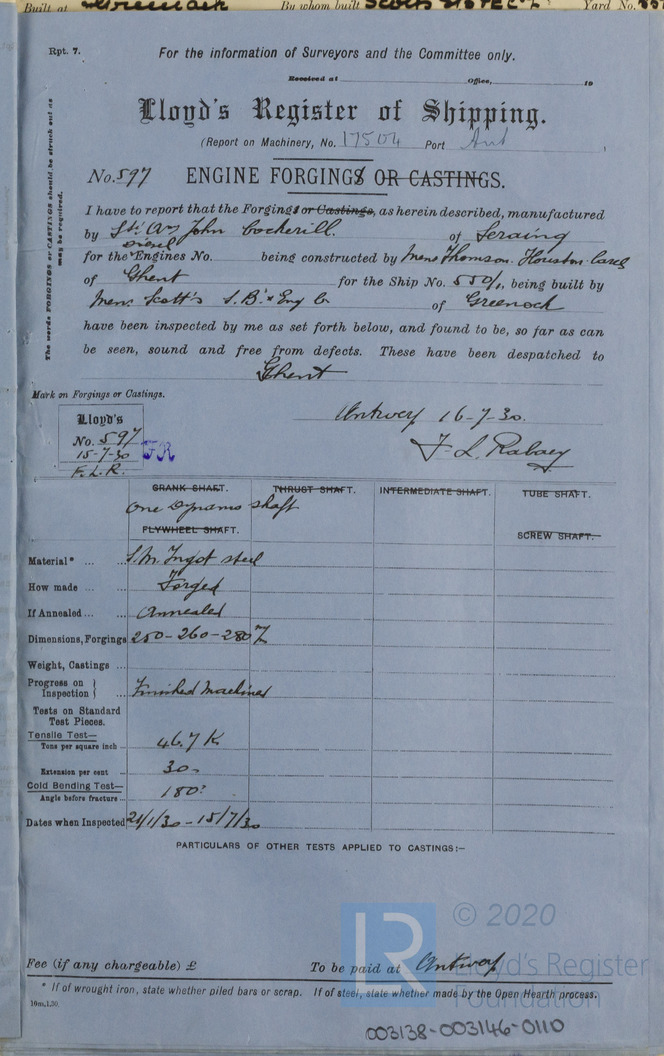 Built at Greenock By whom built Scotts' Yard No. 550
Rpt. 7.
For the information of Surveyors and the Committee only.
Received at Office, 19
Lloyd's Register of Shipping.
(Report on Machinery, No. 17504 Port Ant )
No. 597 ENGINE FORGINGS OR CASTINGS.
I have to report that the Forgings or Castings, as herein described, manufactured
by Sté Ame John Cockerill. of Seraing
Diesel
for the Engines No. being constructed by Thomson Houston
of Ghent for the Ship No. 550/1, being built by
Mess Scott's S.B. & Eng Co of Greenock
have been inspected by me as set forth below, and found to be, so far as can
be seen, sound and free from defects. These have been despatched to
Ghent
The words FORGINGS or CASTINGS should be struck out as
may be required.
Mark on Forgings or Castings.
Lloyd's
No. 597
15-7-30
F.L.R.
FR
Antwerp 16-7-30.
F. L. Rabaey
CRANK SHAFT. THRUST SHAFT. INTERMEDIATE SHAFT. TUBE SHAFT.
One Dynamo shaft
FLYWHEEL SHAFT. SCREW SHAFT.
Material* ... ... S.M. Ingot steel
How made ... ... Forged
If Annealed ... ... Annealed
Dimensions, Forgings 250-260-280
Weight, Castings ...
Progress on
Inspection } ... Finished Machined
Tests on Standard
Test Pieces.
Tensile Test—
Tons per square inch ... 46.7 K
Extension per cent 30
Cold Bending Test—
Angle before fracture ... 180°
Dates when Inspected 21/1/30 - 15/7/30
PARTICULARS OF OTHER TESTS APPLIED TO CASTINGS:—
© 2020
LR
Lloyd's Register
Foundation
Fee (if any chargeable) £ To be paid at Antwerp
* If of wrought iron, state whether piled bars or scrap. If of steel, state whether made by the Open Hearth process.
10m,1,30.
003138-003146-0110